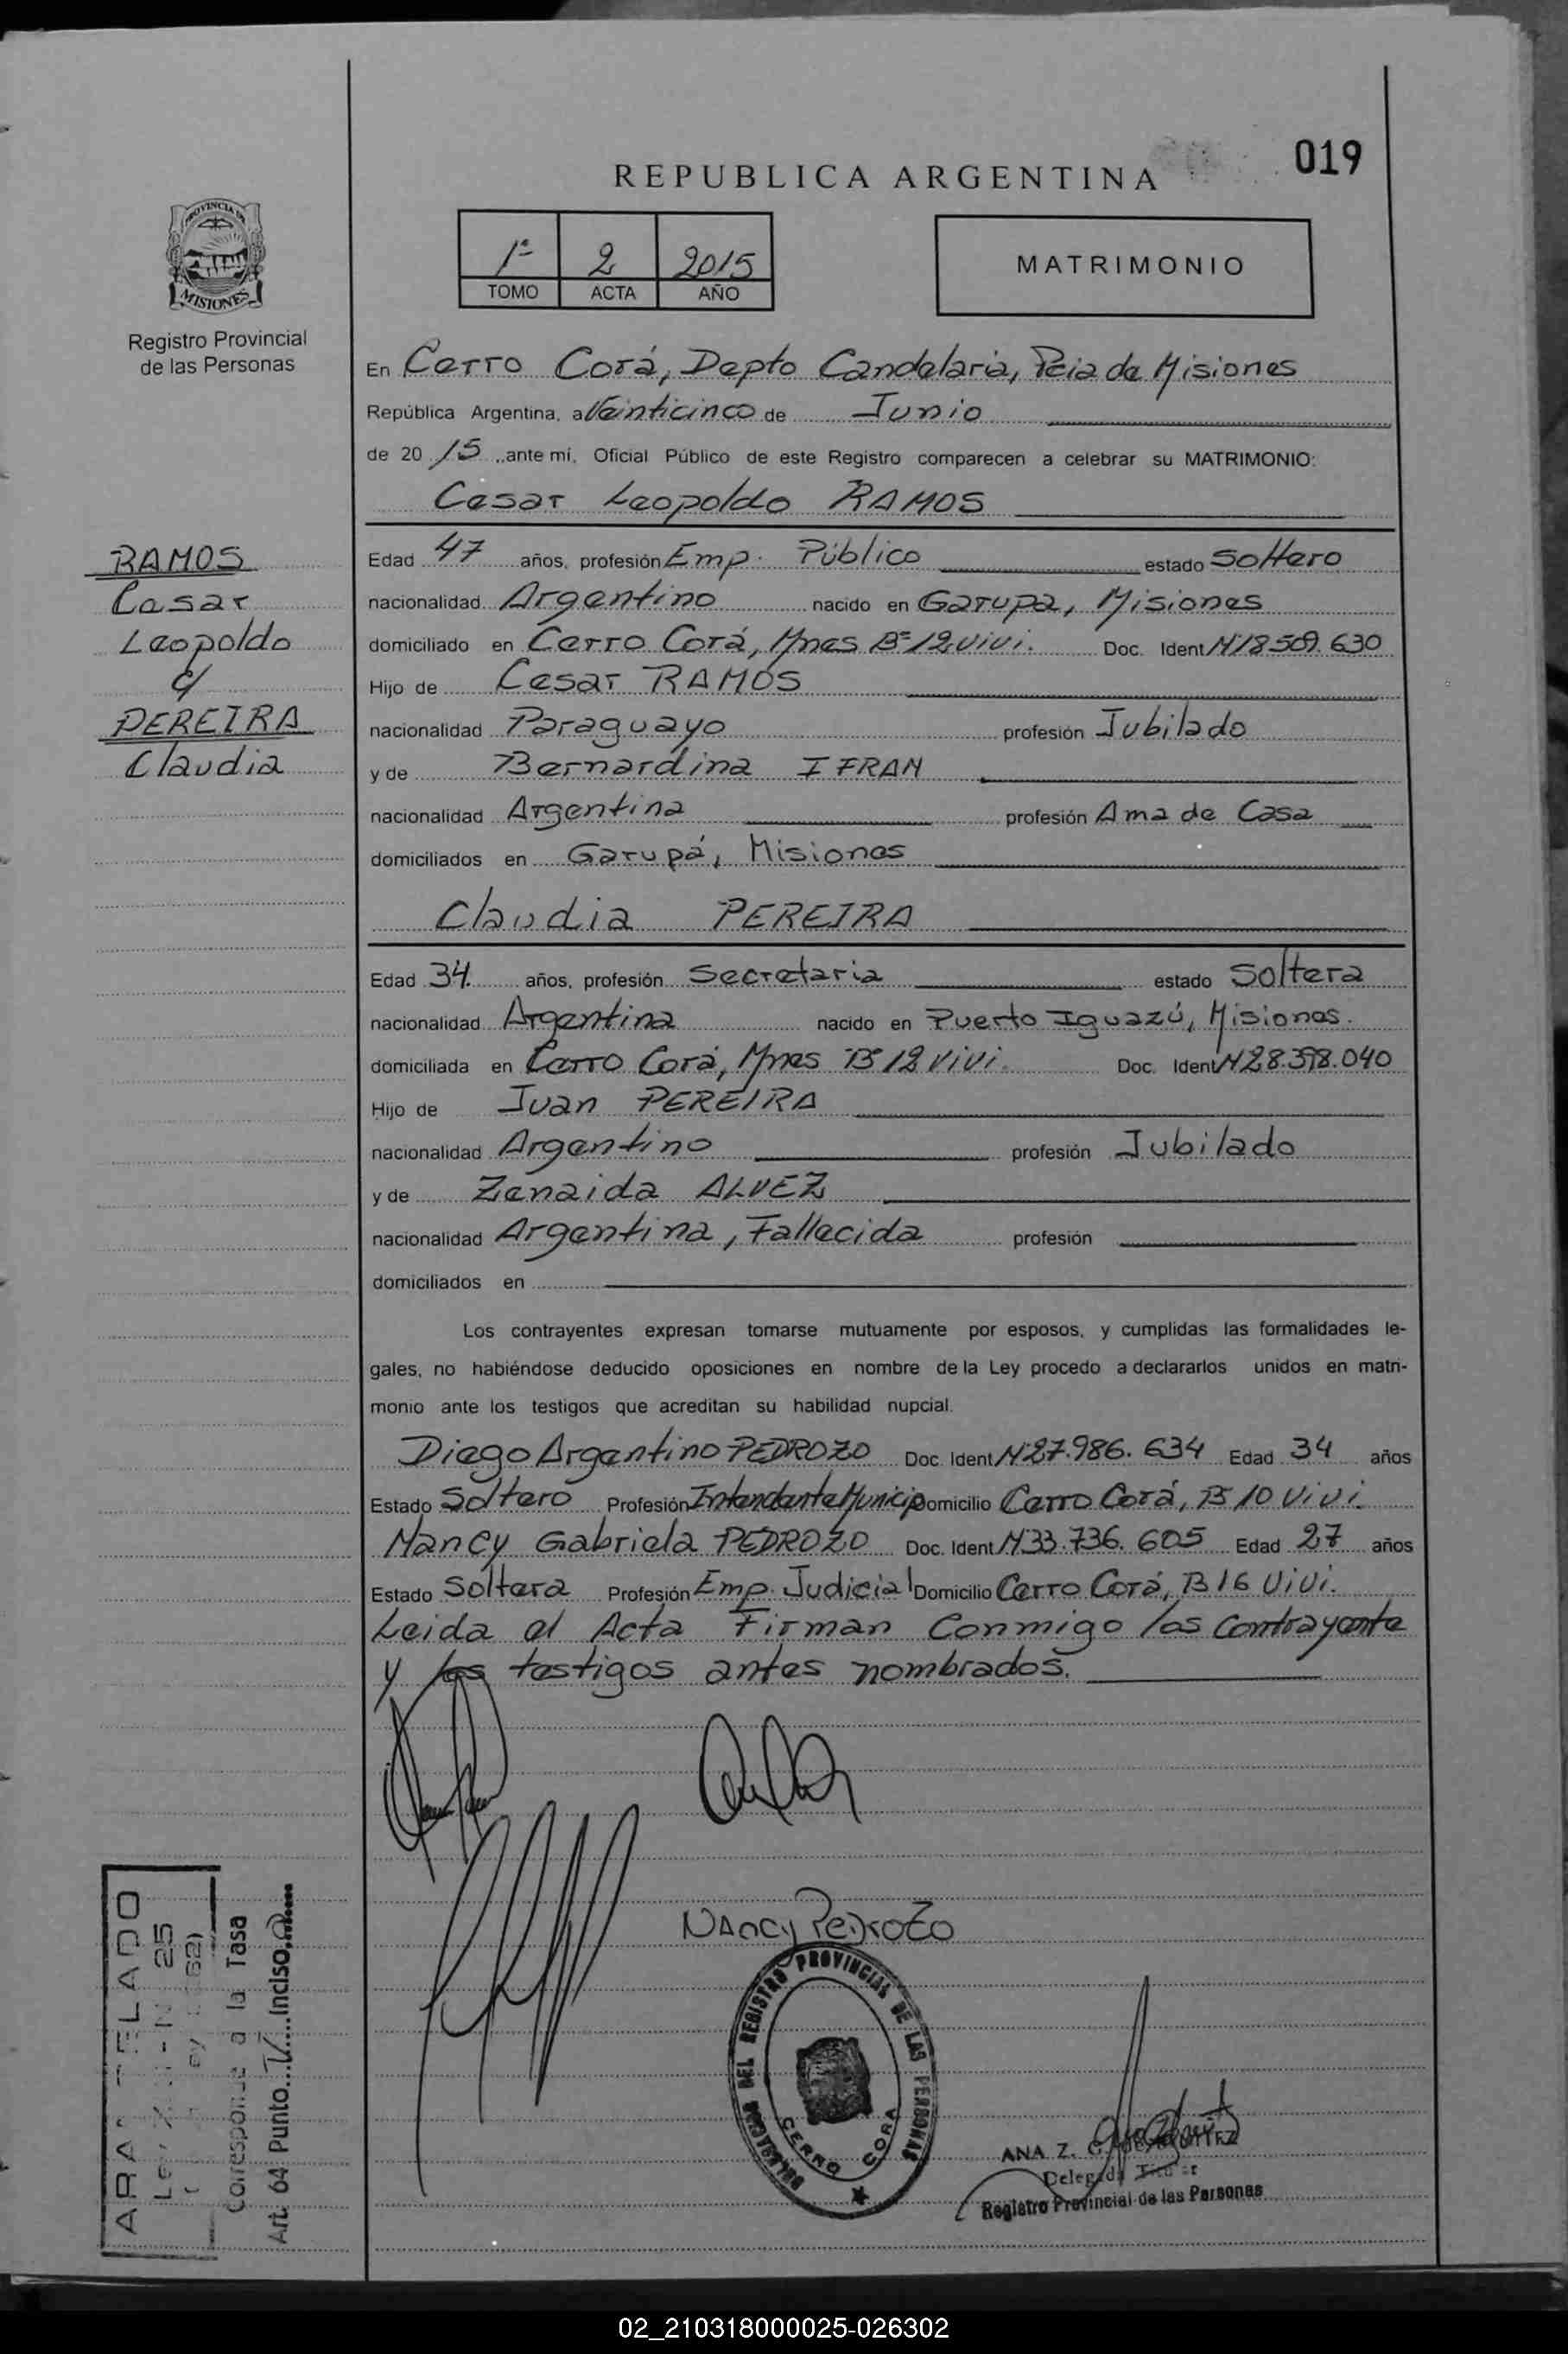 019
REPUBLICA ARGENTINA
PROVINCIA DE
MISIONES
Registro Provincial
de las Personas
1º 2 2015
TOMO ACTA AÑO
MATRIMONIO
En Cerro Corá, Depto Candelaria, Pcia de Misiones
República Argentina, a Veinticinco de Junio
de 20 15 ,,ante mí, Oficial Público de este Registro comparecen a celebrar su MATRIMONIO:
Cesar Leopoldo RAMOS
RAMOS
Cesar
Leopoldo
c/
PEREIRA
Claudia
Edad 47 años, profesión Emp. Público estado Soltero
nacionalidad Argentino nacido en Garupa, Misiones
domiciliado en Cerro Corá, Mnes Bº 12 vivi. Doc. Ident Nº 18.509.630
Hijo de Cesar RAMOS
nacionalidad Paraguayo profesión Jubilado
y de Bernardina IFRAN
nacionalidad Argentina profesión Ama de Casa
domiciliados en Garupá, Misiones
Claudia PEREIRA
Edad 34. años, profesión Secretaria estado Soltera
nacionalidad Argentina nacido en Puerto Iguazú, Misiones.
domiciliada en Cerro Corá, Mnes Bº 12 vivi. Doc. Ident Nº 28.398.040
Hijo de Juan PEREIRA
nacionalidad Argentino profesión Jubilado
y de Zenaida ALVEZ
nacionalidad Argentina, Fallecida profesión
domiciliados en
Los contrayentes expresan tomarse mutuamente por esposos, y cumplidas las formalidades le-
gales, no habiéndose deducido oposiciones en nombre de la Ley procedo a declararlos unidos en matri-
monio ante los testigos que acreditan su habilidad nupcial.
Diego Argentino PEDROZO Doc. Ident Nº 27.986.634 Edad 34 años
Estado Soltero Profesión Intendente Municip Domicilio Cerro Corá, Bº 10 vivi.
Nancy Gabriela PEDROZO Doc. Ident Nº 33.736.605 Edad 27 años
Estado Soltera Profesión Emp. Judicial Domicilio Cerro Corá, B 16 vivi.
Leida el Acta Firman Conmigo los Contrayente
y los testigos antes nombrados.
Nancy Pedrozo
DELEGACION DEL REGISTRO PROVINCIAL DE LAS PERSONAS
CERRO CORA
ANA Z.
Delegada Titular
Registro Provincial de las Personas
Corresponde a la Tasa
Art. 64 Punto Inciso
02_210318000025-026302